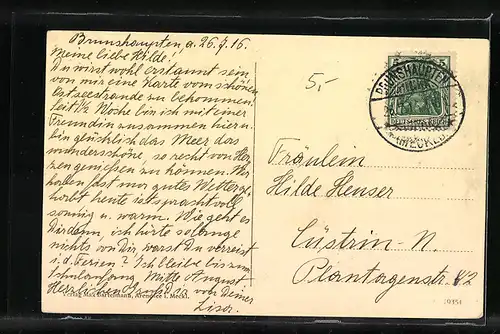 Brunshaupten, a. 26.7.16.
Meine liebe Hilde!
Du wirst wohl erstaunt sein,
von mir eine Karte vom schönen
Ostseestrande zu bekommen.
Seit ½ Woche bin ich mit einer
Freundin zusammen hier u.
bin glücklich das Meer das
wunderschöne, so recht von Her-
zen geniessen zu können. Wir
haben fast nur gutes Wetter ge-
habt heute ists prachtvoll
sonnig u. warm. Wie geht es
Dir denn, ich hörte so lange
nichts von Dir, warst Du verreist
i. d. Ferien? Ich bleibe bis zum
Schulanfang Mitte August
Herzlichen Gruß Dir von Deiner
Lisa.
Verlag Max Bartelmann, Arendsee i. Meckl.
5,-
BRUNSHAUPTEN
(MECKLB)
5
Fräulein
Hilde Heuser
Cüstrin-N.
Plantagenstr.